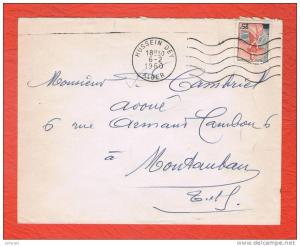 HUSSEIN DEY
18H30
6-2
1960
ALGER
Monsieur Cambriel
avoué
6 rue Armand Cambon 6
à
Montauban
T-et-G.